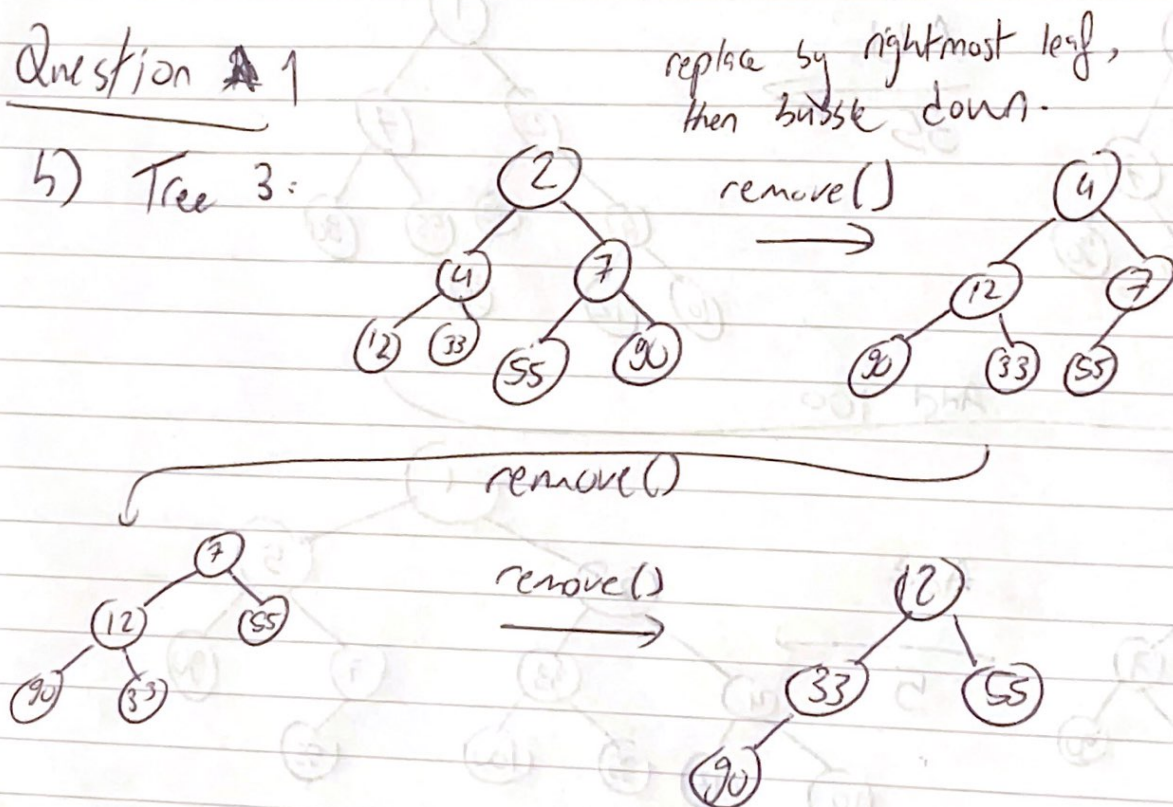 Question 1
replace by rightmost leaf,
then bubble down.
b) Tree 3:
2
4 7
12 33 55 90
remove()
4
12 7
90 33 55
remove()
7
12 55
90 33
remove()
12
33 55
90